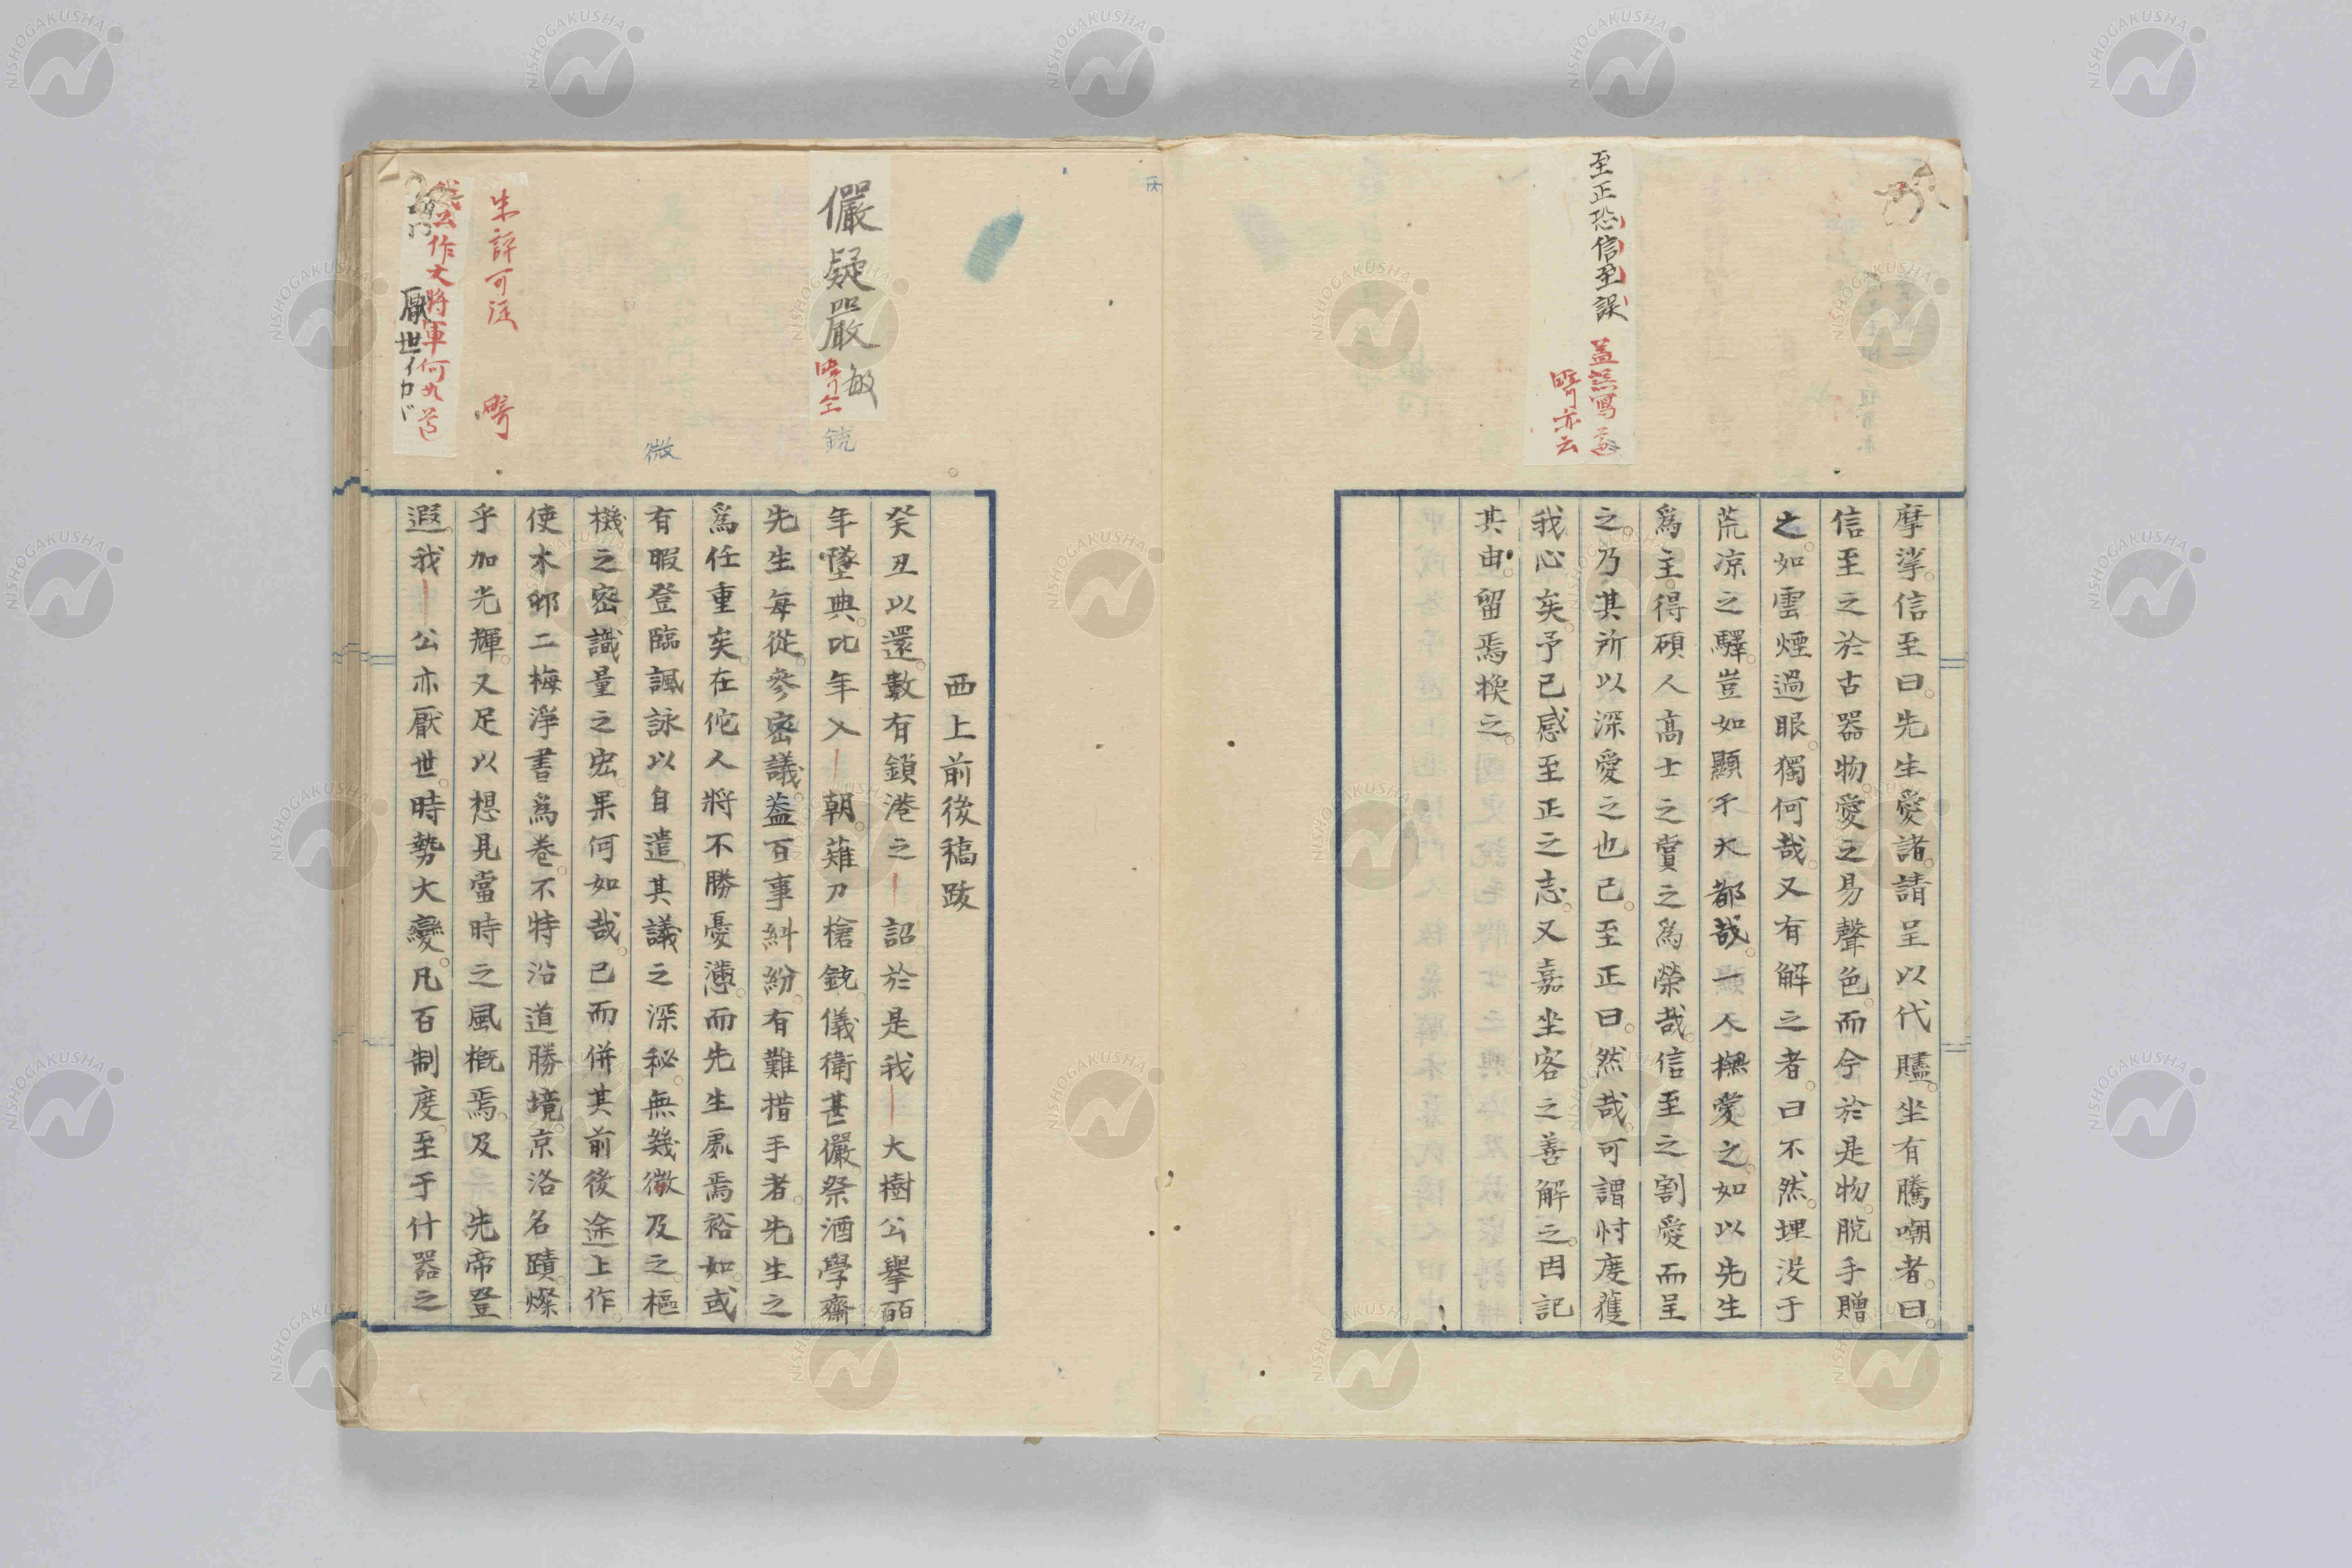 至正恐信至誤
蓋誤寫
疇亦云
摩挲信至曰先生愛諸請呈以代贐坐有騰嘲者曰
信至之於古器物愛之易聲色而今於是物脫手贈
之如雲煙過眼獨何哉又有解之者曰不然埋没于
荒凉之驛豈如顯于大都哉一人撫愛之如以先生
爲主得碩人高士之賞之為榮哉信至之割愛而呈
之乃其所以深愛之也已至正曰然哉可謂忖度獲
我心矣予已感至正之志又嘉坐客之善解之因記
其由留焉換之
儼疑嚴敏
疇仝
銃
微
朱評可従
疇
我公作大將軍何如
厭世イカヾ
西上前後稿跋
癸丑以還數有鎖港之詔於是我大樹公擧百
年墜典比年入朝薙刀槍銃儀衛甚儼祭酒學齋
先生每從參密議蓋百事糾紛有難措手者先生之
爲任重矣在佗人將不勝憂懣而先生處焉裕如或
有暇登臨諷詠以自遣其議之深秘無幾微及之樞
機之密識量之宏果何如哉已而併其前後途上作
使木邨二梅淨書爲卷不特沿道勝境京洛名蹟燦
乎加光輝又足以想見當時之風概焉及先帝登
遐我公亦厭世時勢大變凡百制度至于什器之